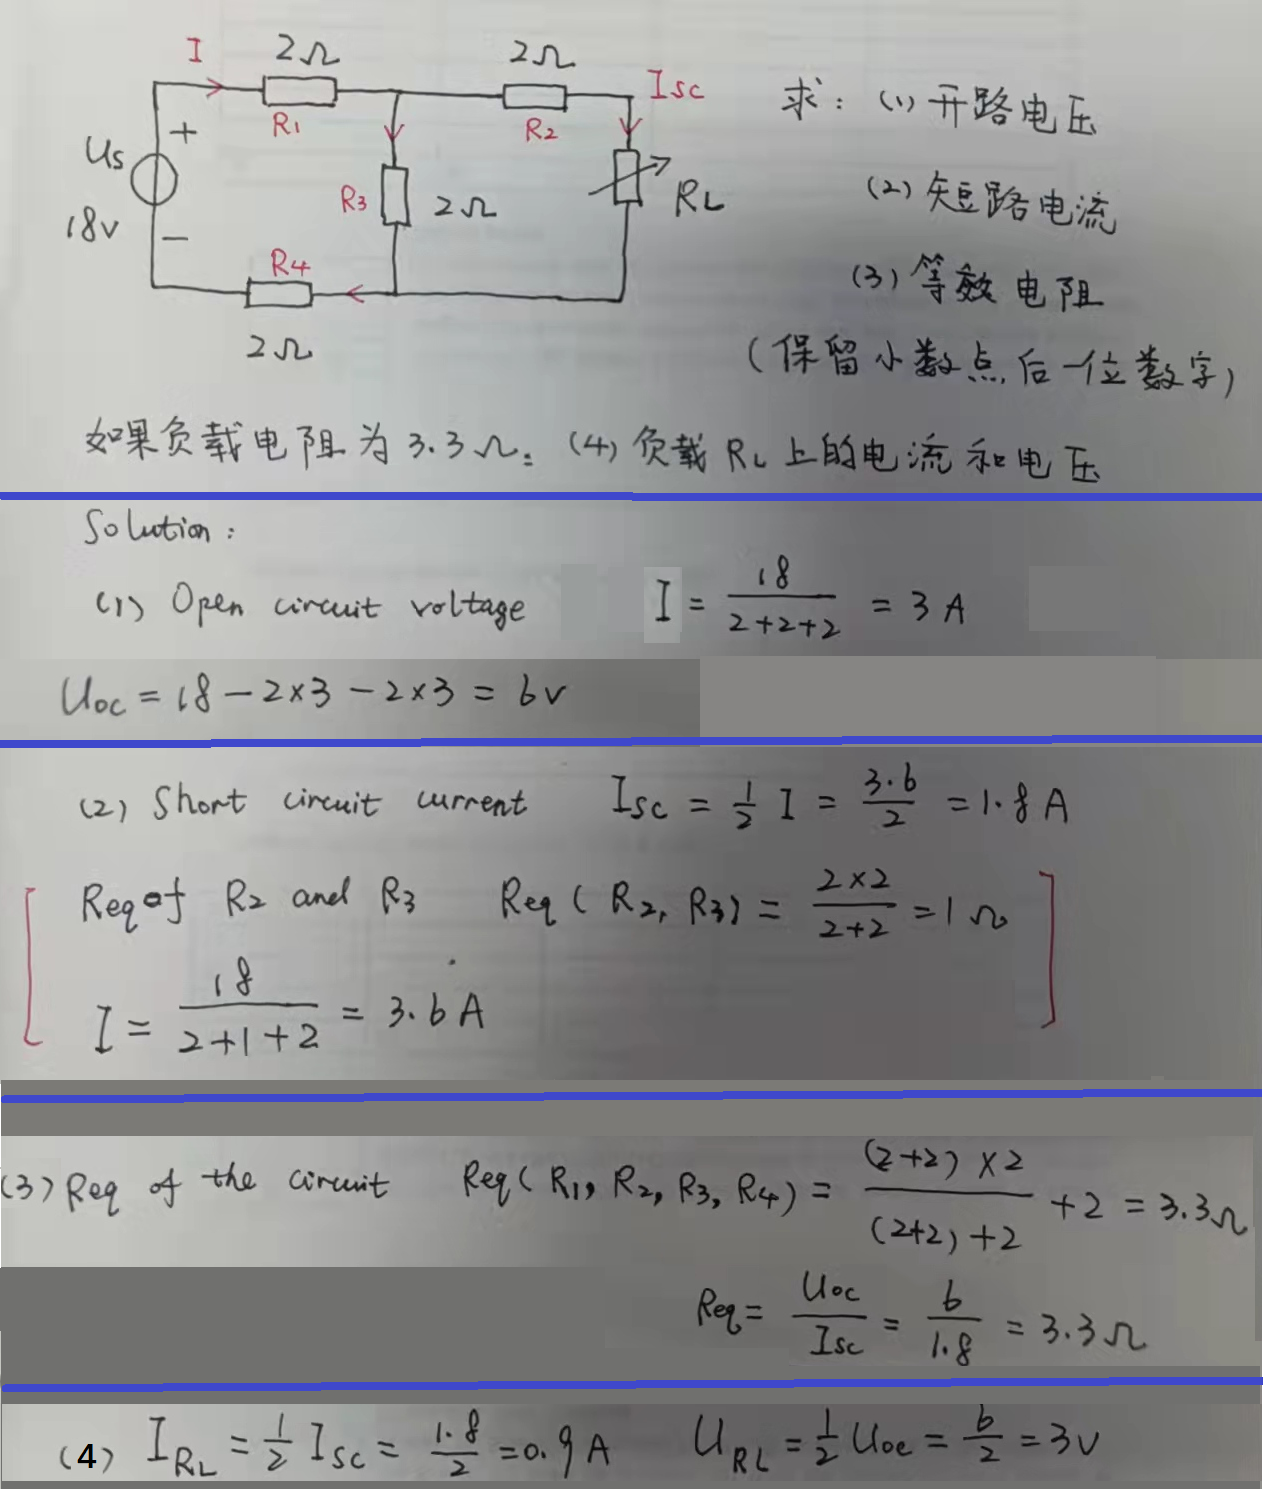 I 2Ω 2Ω Isc
R1 R2
求: (1) 开路电压
Us + R3 2Ω RL
(2) 短路电流
18v −
R4
(3) 等效电阻
2Ω
(保留小数点后一位数字)
如果负载电阻为3.3Ω: (4) 负载RL上的电流和电压
Solution:
(1) Open circuit voltage I = 18/(2+2+2) = 3 A
Uoc = 18 − 2×3 − 2×3 = 6v
(2) Short circuit current Isc = 1/2 I = 3.6/2 = 1.8 A
[Req of R2 and R3 Req ( R2, R3) = (2×2)/(2+2) = 1 Ω
I = 18/(2+1+2) = 3.6 A]
(3) Req of the circuit Req( R1, R2, R3, R4) = ((2+2)×2)/((2+2)+2) + 2 = 3.3Ω
Req = Uoc/Isc = 6/1.8 = 3.3 Ω
(4) IRL = 1/2 Isc = 1.8/2 = 0.9 A URL = 1/2 Uoc = 6/2 = 3v